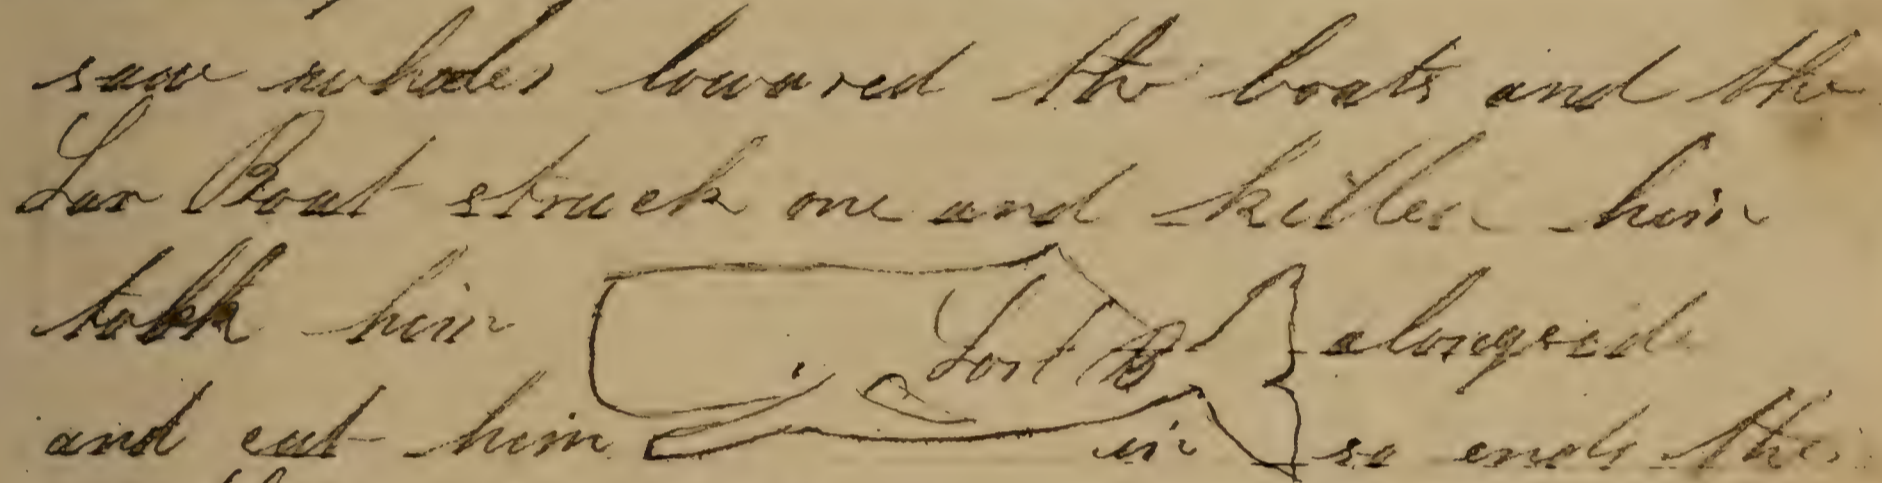 saw whales lowared the boats and the
Lar Boat struck one and killed him
tokk him Lar B alongside
and cut him in so ends the